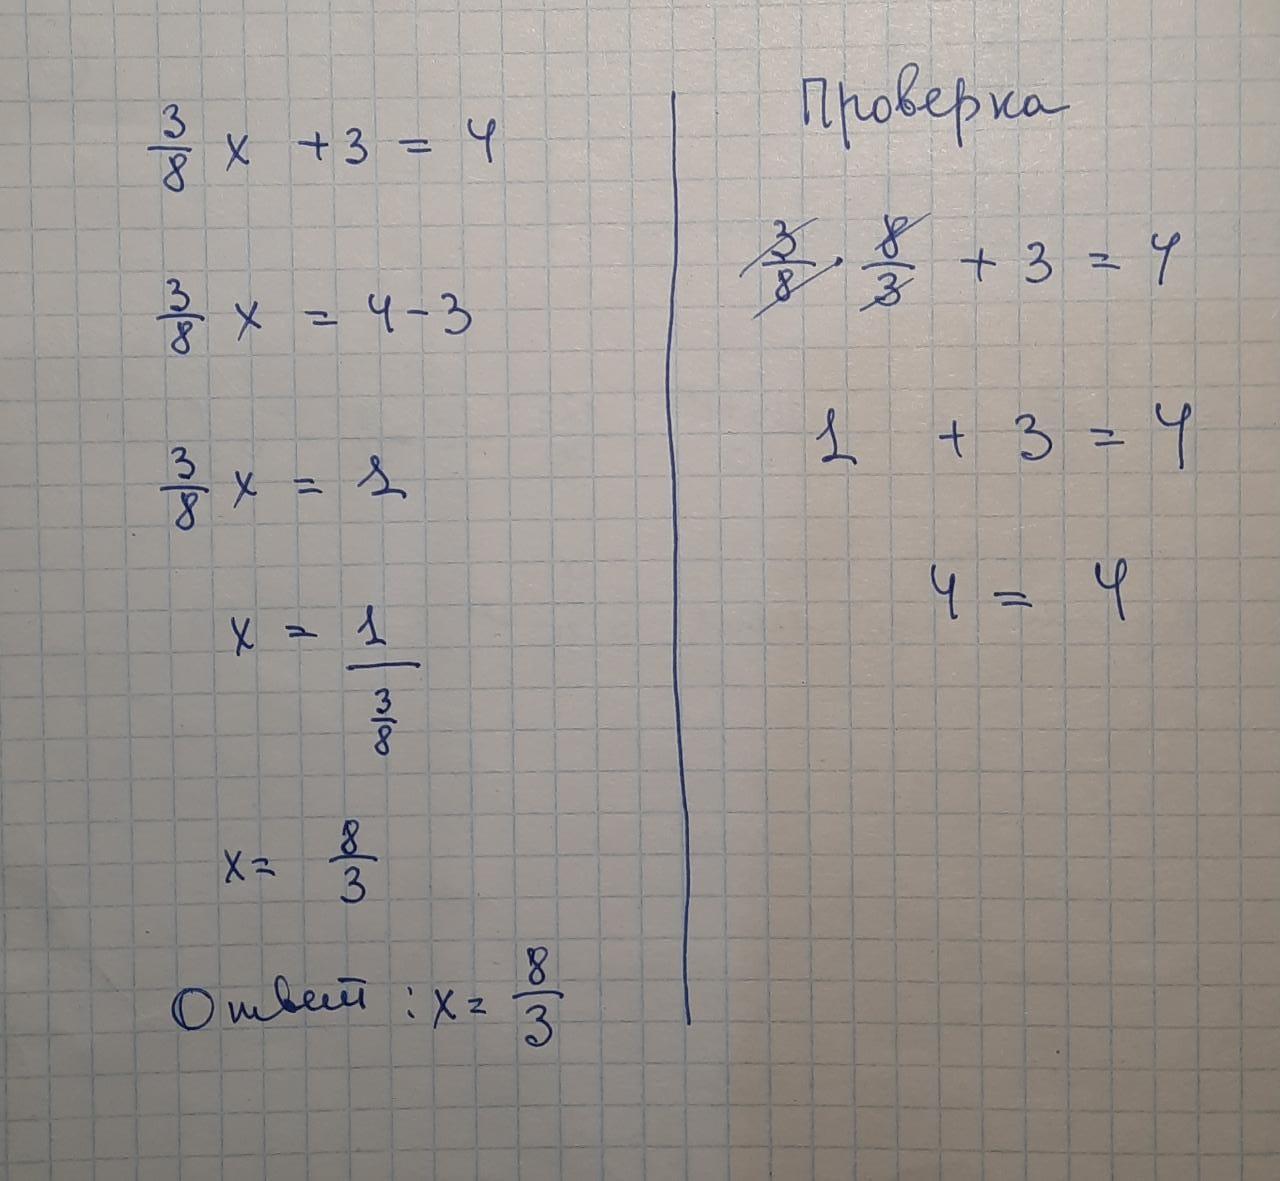 3/8 x + 3 = 4
3/8 x = 4 - 3
3/8 x = 1
x = 1 / (3/8)
x = 8/3
Ответ : x = 8/3
Проверка
3/8 · 8/3 + 3 = 4
1 + 3 = 4
4 = 4